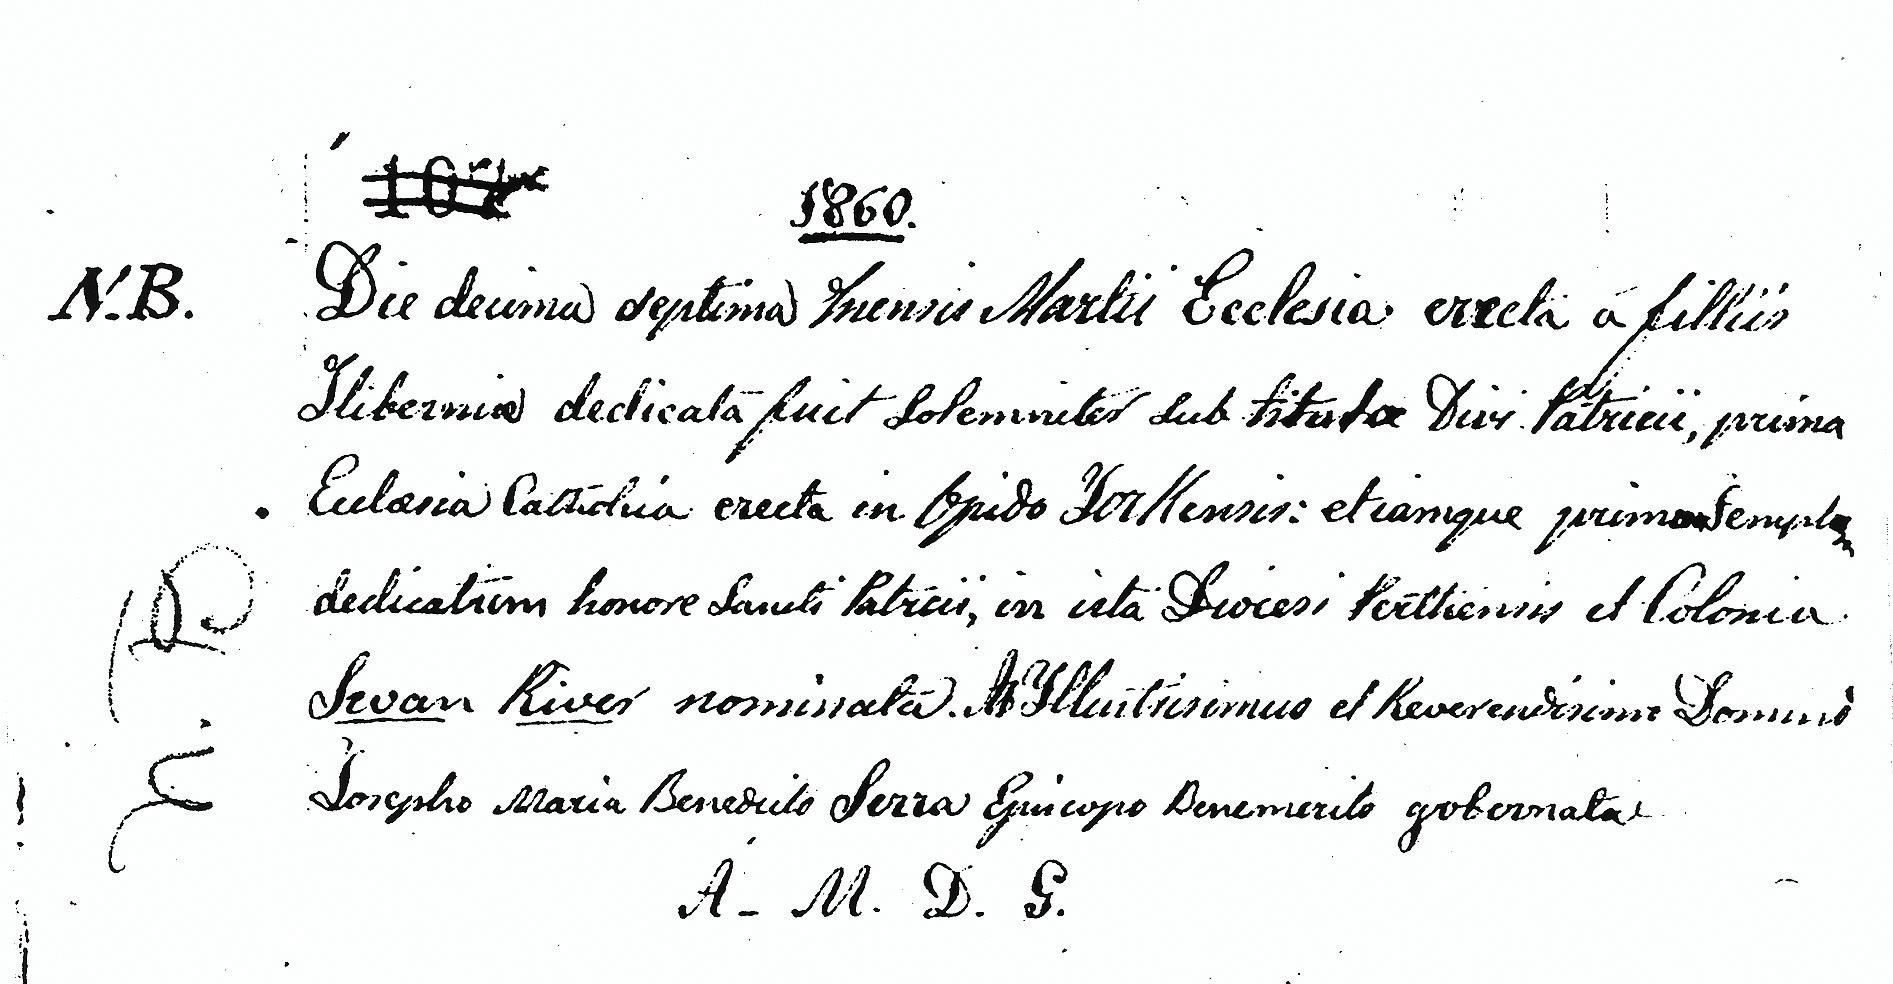 1860.
N.B. Die decima septima mensis Martii Ecclesia erecta a filliis
Hiberniæ dedicata fuit solemniter sub titulo Divi Patricii, prima
Ecclæsia Cattholica erecta in Opido Yorkensis: etiamque primum Templum
dedicatum honore Sancti Patricii, in ista Diocesi Perthensis et Colonia
Swan River nominata. Ab Yllustrisimus et Reverendisimo Domino
Josepho Maria Benedicto Serra Episcopo Benemerito gobernata
A. M. D. G.